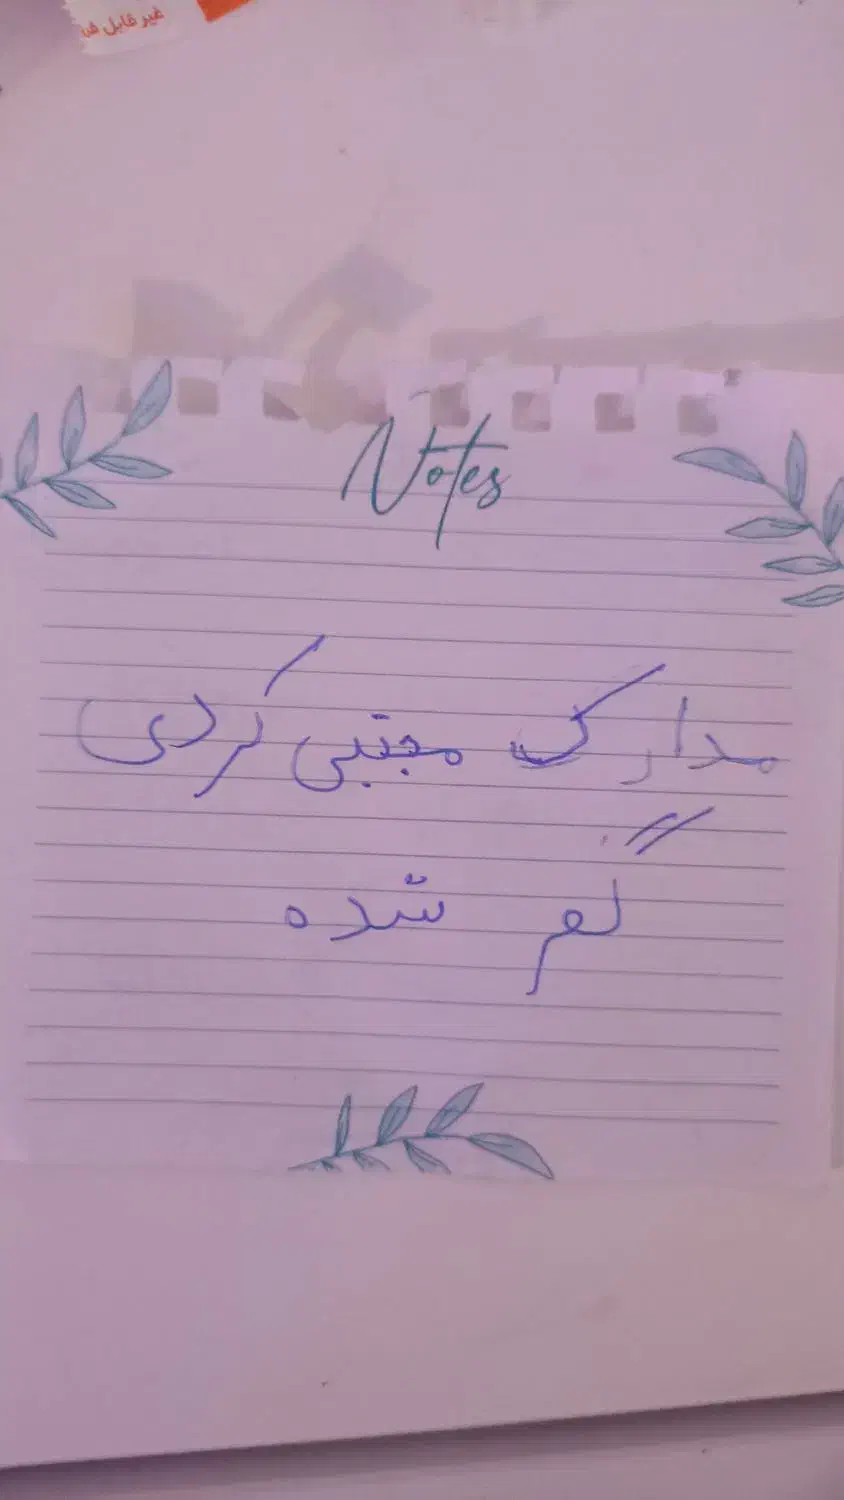 غیر قابل
Notes
مدارک مجتبی کردی
گم شده